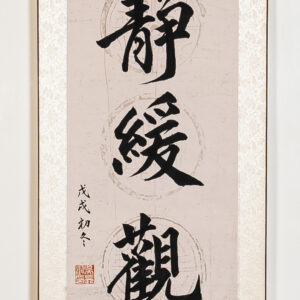 靜
緩
觀
戊戌初冬